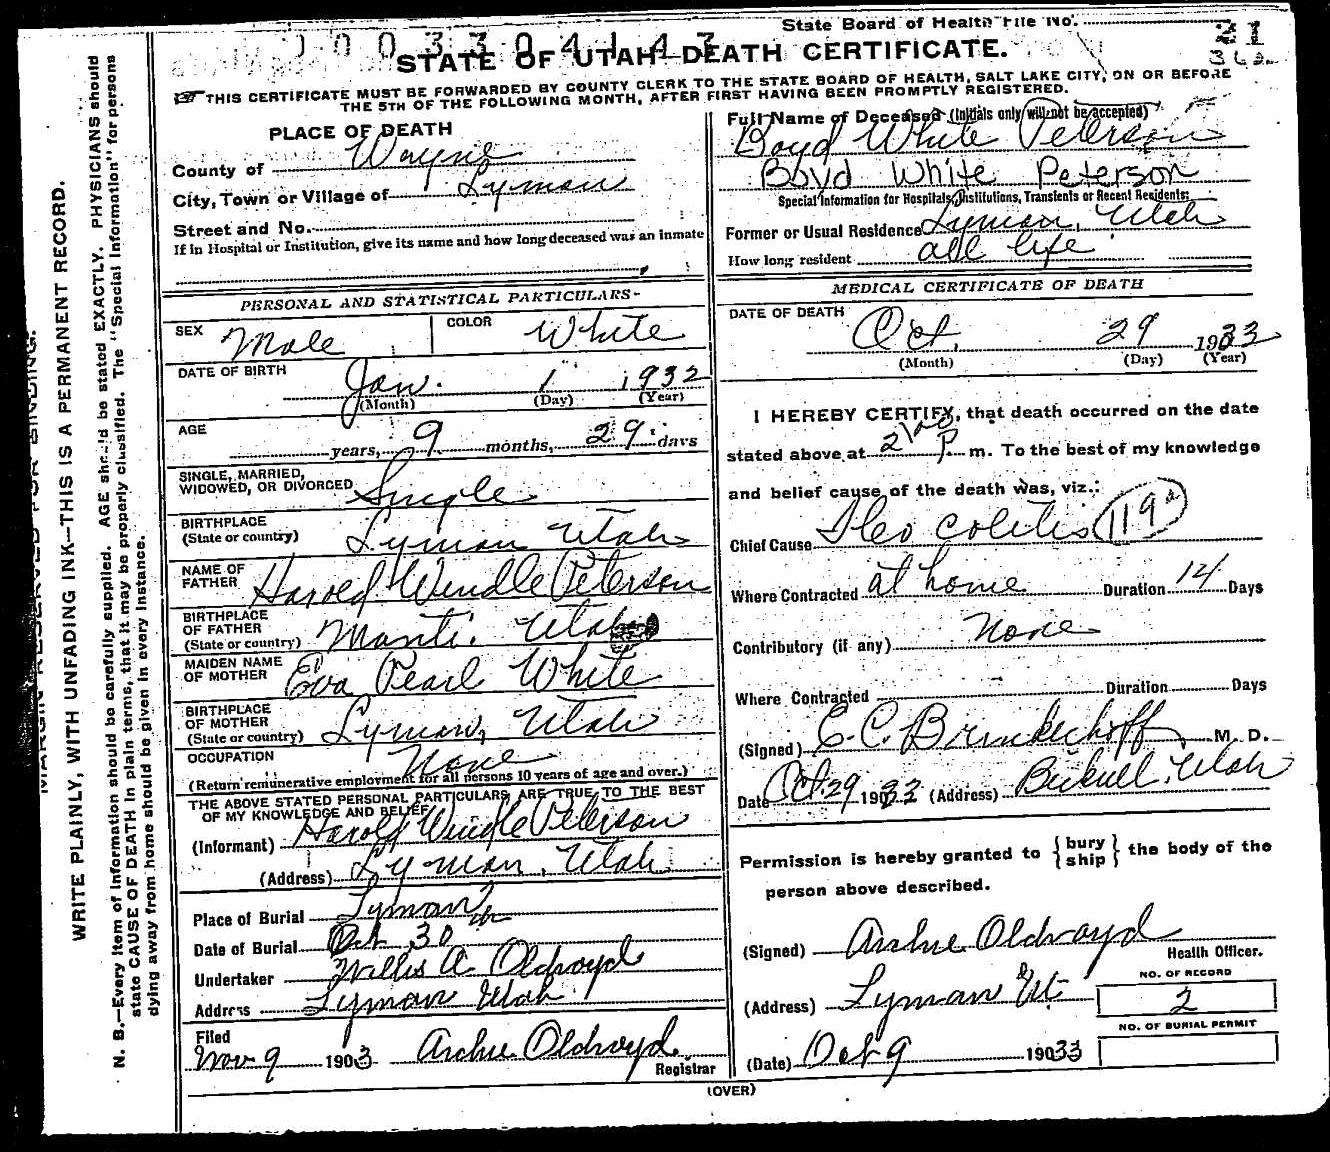 State Board of Health File No. 21
1003304143
362
STATE OF UTAH—DEATH CERTIFICATE.
THIS CERTIFICATE MUST BE FORWARDED BY COUNTY CLERK TO THE STATE BOARD OF HEALTH, SALT LAKE CITY, ON OR BEFORE
THE 5TH OF THE FOLLOWING MONTH, AFTER FIRST HAVING BEEN PROMPTLY REGISTERED.
PLACE OF DEATH
County of Wayne
City, Town or Village of Lyman
Street and No.
If in Hospital or Institution, give its name and how long deceased was an inmate
PERSONAL AND STATISTICAL PARTICULARS-
SEX Male
COLOR White
DATE OF BIRTH Jan. 1 1932
(Month) (Day) (Year)
AGE
years, 9 months, 29 days
SINGLE, MARRIED,
WIDOWED, OR DIVORCED Single
BIRTHPLACE
(State or country) Lyman Utah
NAME OF
FATHER Harold Wendle Peterson
BIRTHPLACE
OF FATHER
(State or country) Manti. Utah
MAIDEN NAME
OF MOTHER Eva Pearl White
BIRTHPLACE
OF MOTHER
(State or country) Lyman, Utah
OCCUPATION None
(Return remunerative employment for all persons 10 years of age and over.)
THE ABOVE STATED PERSONAL PARTICULARS ARE TRUE TO THE BEST
OF MY KNOWLEDGE AND BELIEF
(Informant) Harold Wendle Peterson
(Address) Lyman, Utah
Place of Burial Lyman
Date of Burial Oct 30
Undertaker Willis A. Oldroyd
Address Lyman Utah
Filed
Nov 9 1903 Archie Oldroyd.
Registrar
Full Name of Deceased (Initials only will not be accepted)
Boyd White Peterson
Boyd White Peterson
Special Information for Hospitals, Institutions, Transients or Recent Residents:
Former or Usual Residence Lyman, Utah
How long resident all life
MEDICAL CERTIFICATE OF DEATH
DATE OF DEATH
Oct. 29 1933
(Month) (Day) (Year)
I HEREBY CERTIFY, that death occurred on the date
stated above at 2 100 P. m. To the best of my knowledge
and belief cause of the death was, viz.:
Chief Cause Ileo colitis 119a
Where Contracted at home Duration 14 Days
Contributory (if any) None
Where Contracted Duration Days
(Signed) E. C. Brinkerhoff, M. D.
Date Oct. 29 1933 (Address) Bicknell, Utah
Permission is hereby granted to { bury
ship } the body of the
person above described.
(Signed) Archie Oldroyd
Health Officer.
(Address) Lyman Ut.
NO. OF RECORD
2
NO. OF BURIAL PERMIT
(Date) Oct 9 19033
(OVER)
WRITE PLAINLY, WITH UNFADING INK—THIS IS A PERMANENT RECORD.
N. B.—Every item of information should be carefully supplied. AGE should be stated EXACTLY. PHYSICIANS should
state CAUSE OF DEATH in plain terms, that it may be properly classified. The "Special Information" for persons
dying away from home should be given in every instance.